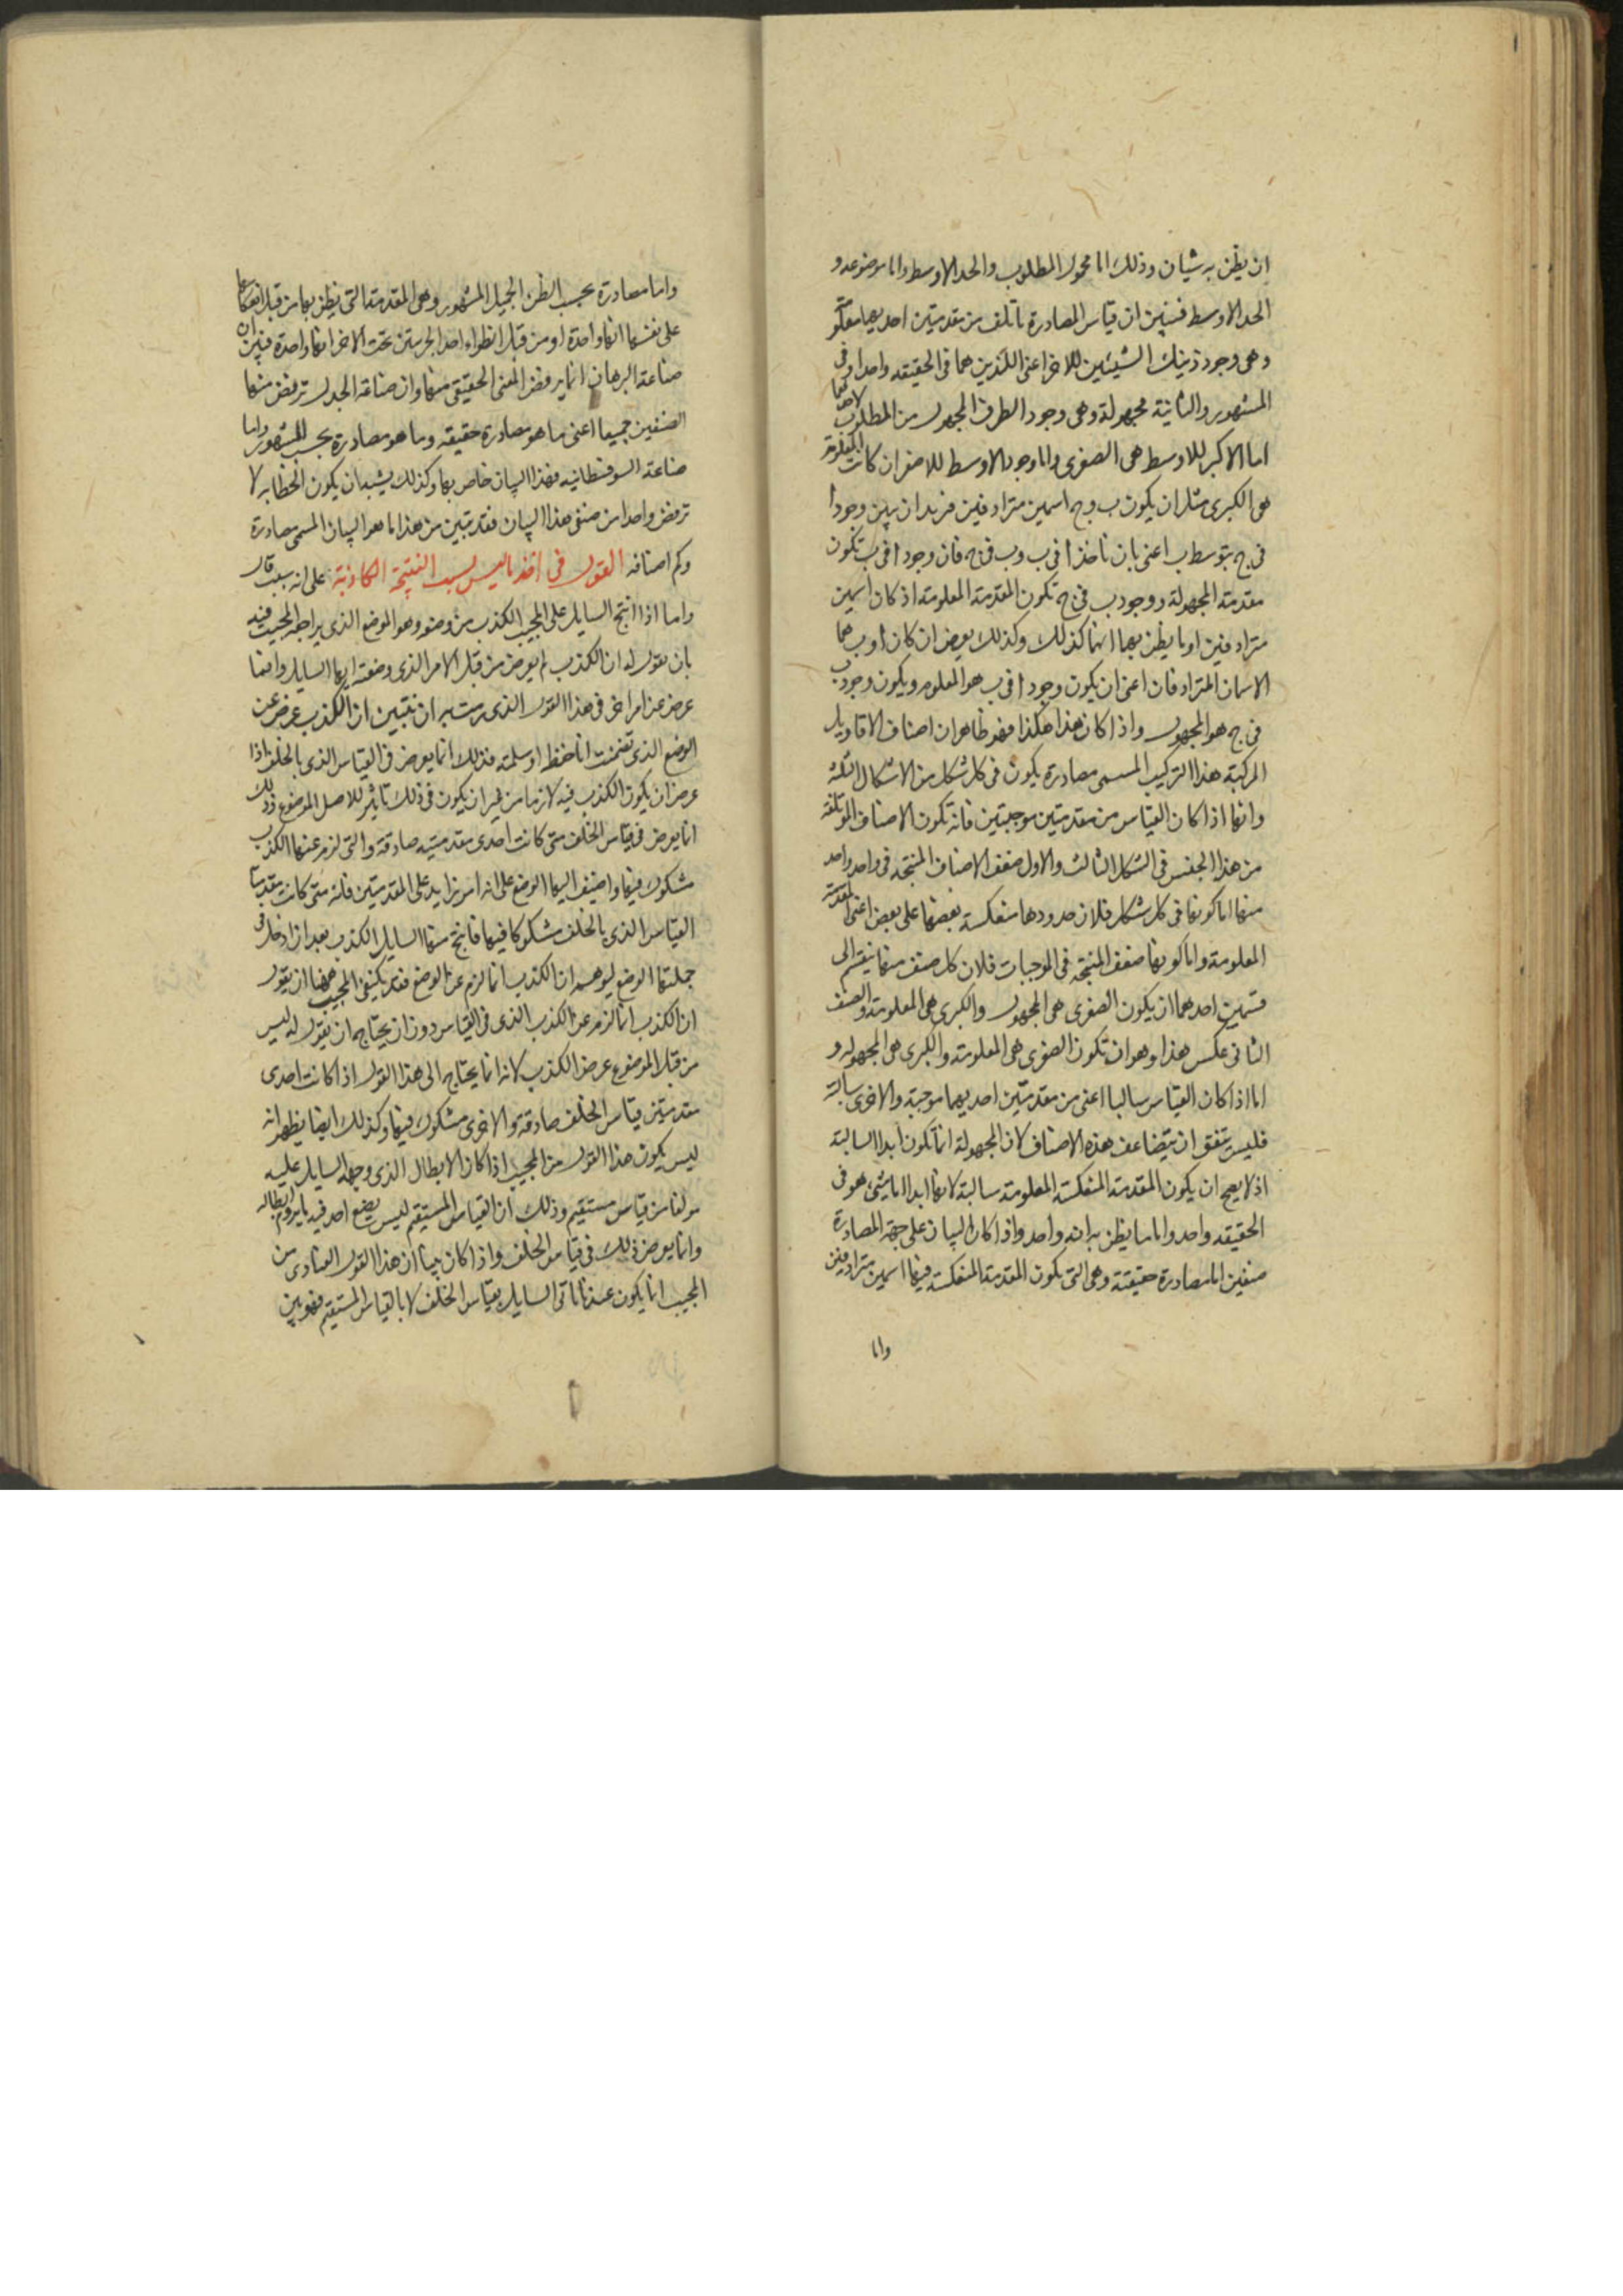 ان يظن به شيان وذلك اما محمول المطلوب والحد الاوسط واما موضوعه و
الحد الاوسط فتبين ان قياس المصادرة ياتلف من مقدمتين احديهما معلومة
وهى وجود ذينك الشيئين للاخر اعنى اللذين هما فى الحقيقه واحد او فى
المشهور والثانية مجهولة وهى وجود الطرف المجهول من المطلوب
اما الاكبر للاوسط هى الصغرى واما وجود الاوسط للاصغر ان كانت المعلومة
هى الكبرى مثل ان يكون ب وج اسمين مترادفين فنريد ان نبين وجود ا
فى ج بتوسط ب اعنى بان ناخذ ا فى ب وب فى ج فان وجود ا فى ب تكون
مقدمته المجهولة ووجود ب فى ج تكون المقدمة المعلومة اذ كان اسمين
مترادفين او ما يظن بهما انهما كذلك وكذلك يعرض ان كان ا وب هما
الاسمان المترادفان اعنى ان يكون وجود ا فى ب هو المعلوم ويكون وجود ب
فى ج هو المجهول واذا كان هذا هكذا فهو ظاهر ان اصناف الاقاويل
المركبة هذا التركيب المسمى مصادرة يكون فى كل شكل من الاشكال الثلثة
وانها اذا كان القياس من مقدمتين موجبتين فانه تكون الاصناف المؤتلفة
من هذا الجنس فى الشكل الثالث والاول ضعف الاصناف المنتجه فى واحد واحد
منها اما كونها فى كل شكل فلان حدودها منعكسة بعضها على بعض اعنى المقدمة
المعلومة واما كونها ضعف المنتجه فى الموجبات فلان كل صنف منها ينقسم الى
قسمين احدهما ان يكون الصغرى هى المجهول والكبرى هى المعلومة والصنف
الثانى عكس هذا وهو ان تكون الصغرى هى المعلومة والكبرى هى المجهوله و
اما اذا كان القياس سالبا اعنى من مقدمتين احديهما موجبة والاخرى سالبة
فليس يتفق ان يتضاعف هذه الاصناف لان المجهولة انما تكون ابدا السالبة
اذ لا يصح ان يكون المقدمة المنعكسة المعلومة سالبة لانها ابدا اما شىء هو فى
الحقيقه واحد واما ما يظن به انه واحد واذا كان البيان على جهة المصادرة
صنفين اما مصادرة حقيقة وهى التى يكون المقدمة المنعكسة فيها اسمين مترادفين
واما
واما مصادرة بحسب الظن الجميل المشهور وهى المقدمة التى يظن بها من قبل انعكاسها
على نفسها انها واحدة او من قبل انطواء احد الجزءين تحت الاخر انها واحدة فتبين ان
صناعة البرهان انما يرفض المعنى الحقيقى منها وان صناعة الجدل ترفض منها
الصنفين جميعا اعنى ما هو مصادرة حقيقه وما هو مصادرة بحسب المشهور واما
صناعة السوفسطانيه فهذا البيان خاص بها وكذلك يشبه ان يكون الخطابه لا
ترفض واحدا من صنفى هذا البيان فقد تبين من هذا ما هو البيان المسمى مصادرة
وكم اصنافه القول فى اخذ ما ليس بسبب النتيجة الكاذبة على انه سبب قال
واما اذا انتج السايل على المجيب الكذب من وضعه وهو الموضع الذى يراجع المجيب فيه
بان يقول له ان الكذب لم يعرض من قبل الامر الذى وضعته ايها السايل وانما
عرض عن امر اخر فى هذا القول الذى رمت به ان تبين ان الكذب عرض عن
الوضع الذى تضمنت انا حفظه او سلمته فذلك انما يعرض فى القياس الذى بالخلف اذا
عرض ان يكون الكذب فيه لازما من غير ان يكون فى ذلك تاثير للاصل الموضوع وذلك
انما يعرض فى قياس الخلف متى كانت احدى مقدمتيه صادقة والتى لزم عنها الكذب
مشكوك فيها واضيف اليها الوضع على انه امر زايد على المقدمتين فانه متى كانت مقدمتا
القياس الذى بالخلف مشكوكا فيها فانتج منها السايل الكذب بعد ان ادخل فى
جملتها الوضع ليوهم ان الكذب انما لزم عن الوضع فقد يكتفى المجيب ههنا ان يقول
ان الكذب انما لزم عن الكذب الذى فى القياس دون ان يحتاج ان يقول له ليس
من قبل الموضوع عرض الكذب لانه انما يحتاج الى هذا القول اذا كانت احدى
مقدمتين قياس الخلف صادقة والاخرى مشكوك فيها وكذلك ايضا يظهر انه
ليس يكون هذا القول من المجيب اذا كان الابطال الذى وجهه السايل عليه
مولفا من قياس مستقيم وذلك ان القياس المستقيم ليس يضع احد فيه ما يروم ابطاله
وانما يعرض ذلك فى قياس الخلف واذا كان بينا ان هذا القول العنادى من
المجيب انما يكون عندما ياتى السايل بقياس الخلف لا بالقياس المستقيم فهو بين